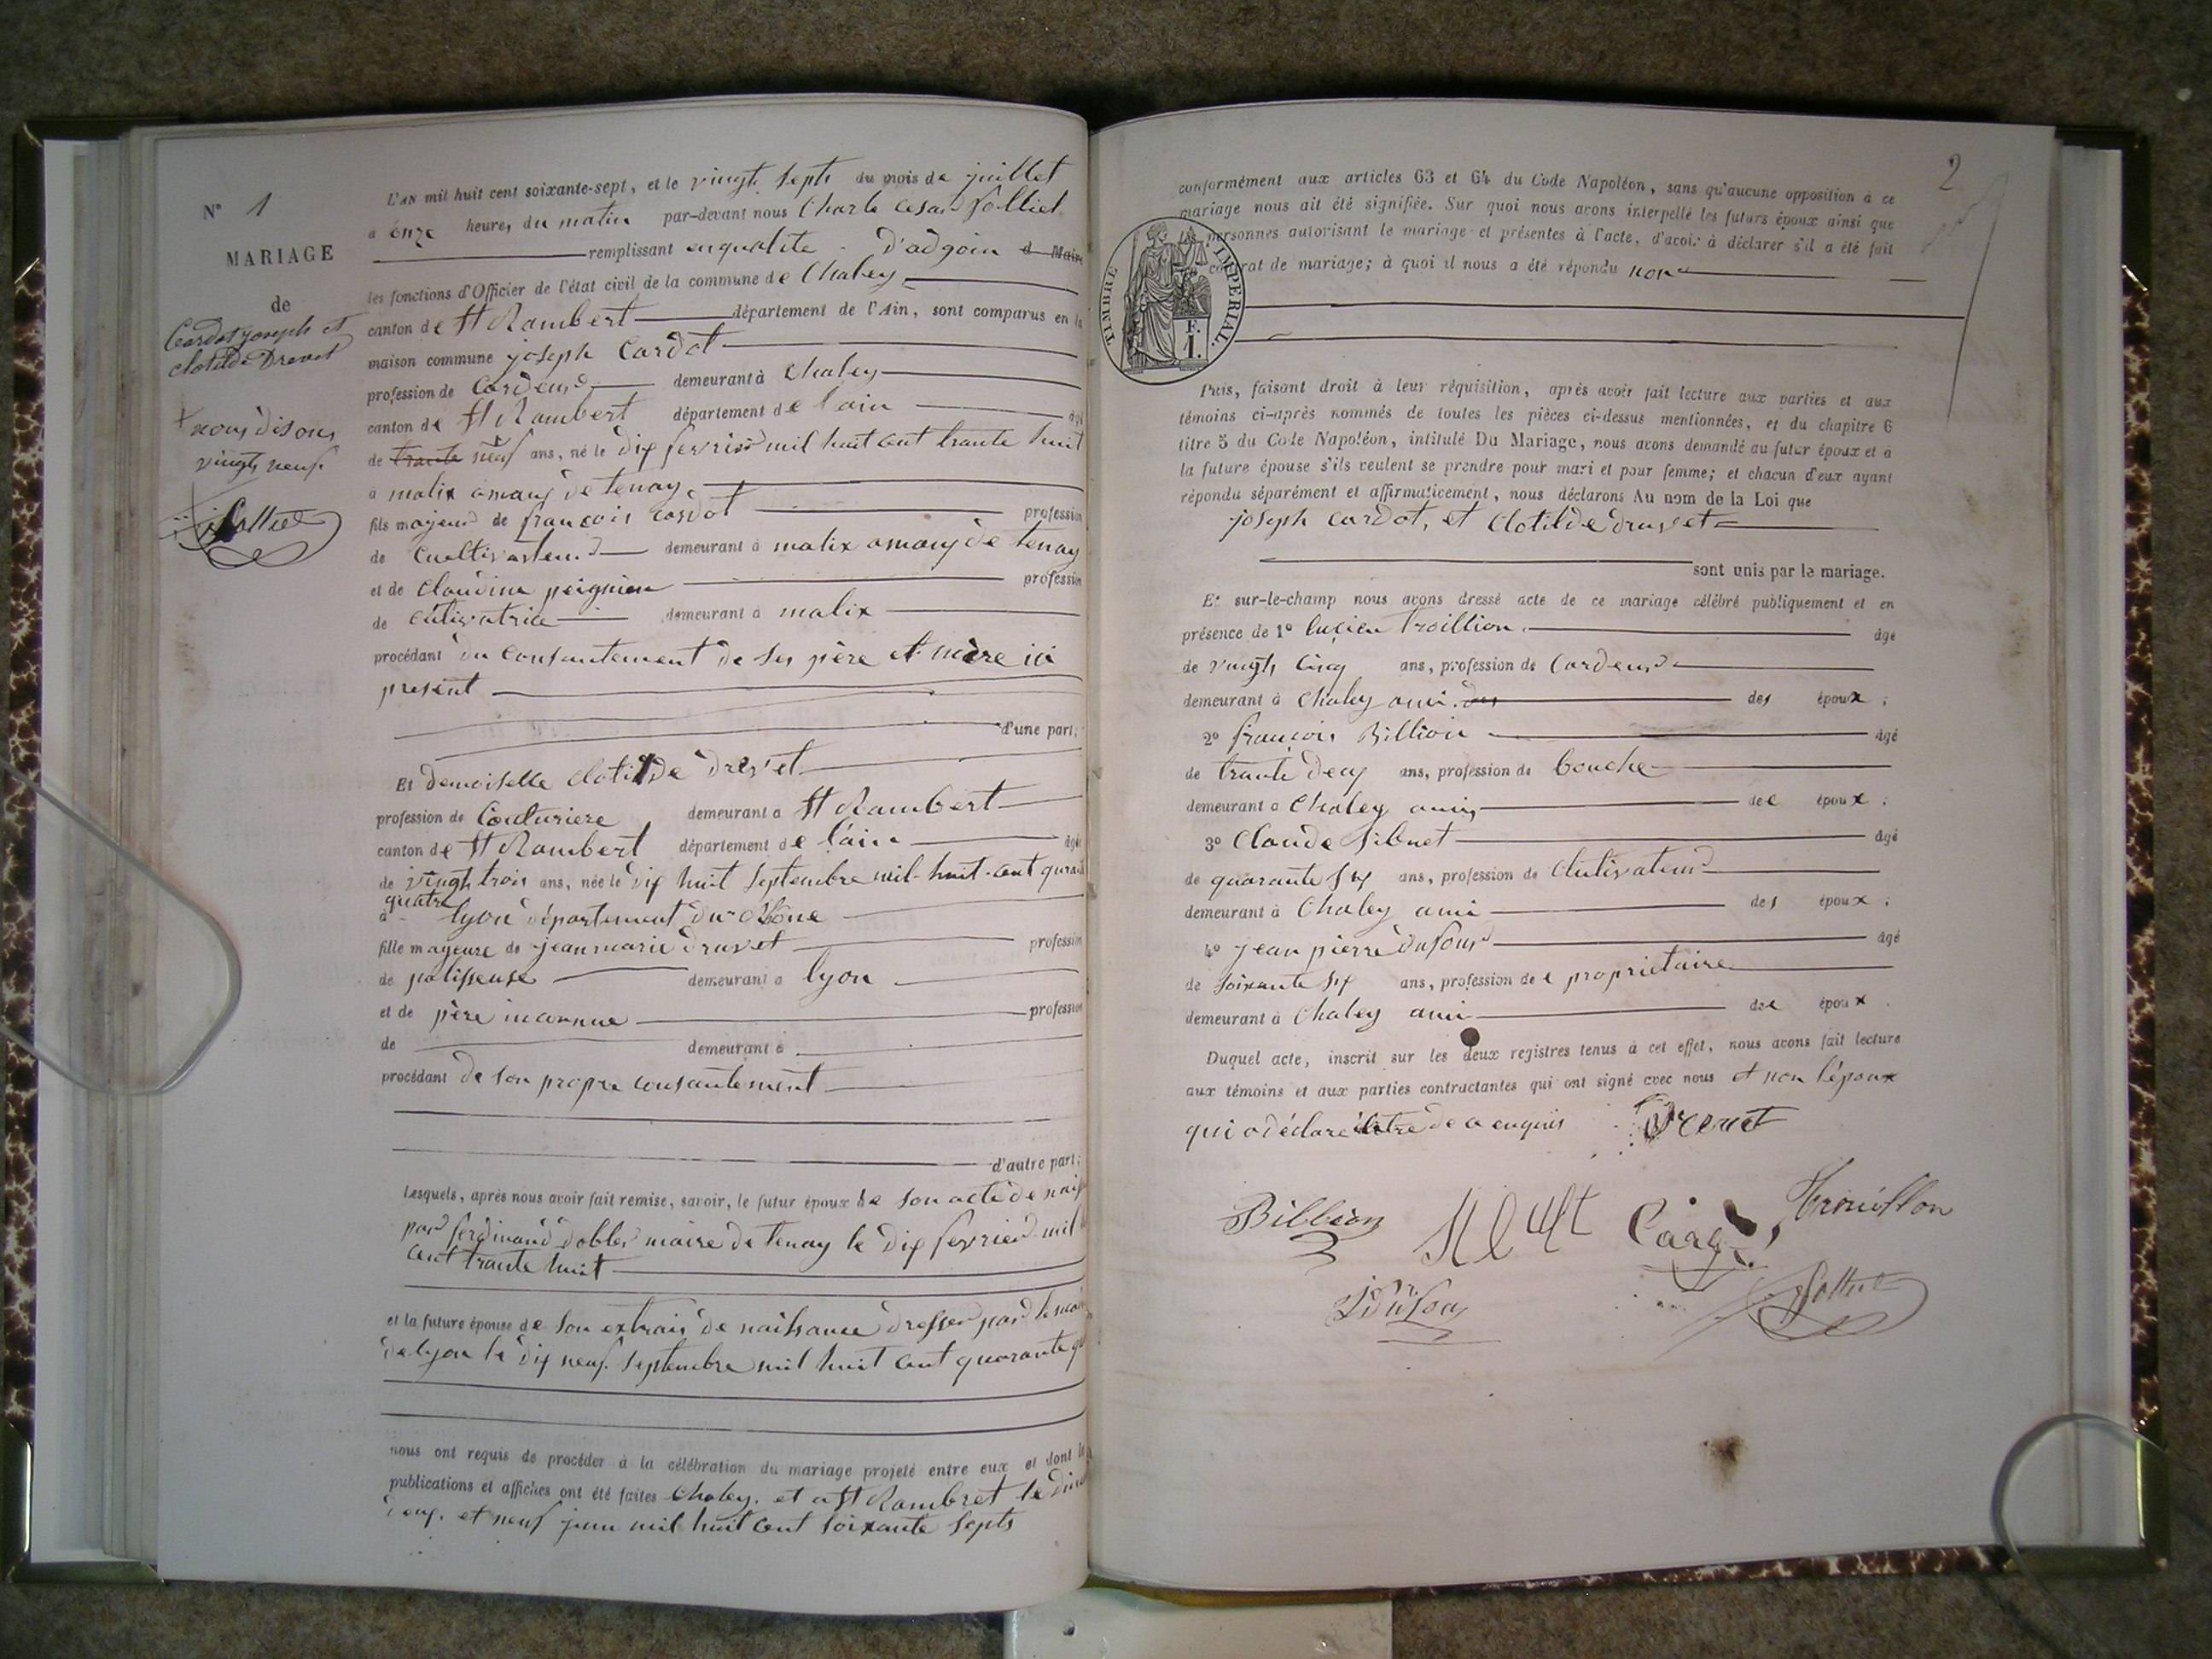 N° 1
MARIAGE
de
Cardot joseph et
clotilde Drevet
+ nous disons
vingts neuf.
L'AN mil huit cent soixante-sept, et le vingts septs du mois de juillet
a onze heure, du matin par-devant nous Charle cesar folliet
remplissant en qualite d'adgoin d Maire
les fonctions d'Officier de l'état civil de la commune de Chaley
canton de St Rambert département de l'Ain, sont comparus en la
maison commune joseph Cardot
profession de Cardeur demeurant à Chaley
canton de St Rambert département de l'ain âgé
de trante neuf ans, né le dix fevrier mil huit cent trante huit
à malix amaux de tenay
fils majeur de françois Cardot profession
de Cueltivateur demeurant à malix amaux de tenay
et de Claudine peignien profession
de cultivatrice demeurant a malix
procédant du consantement de ses père et mère ici
présent
d'une part;
Et demoiselle Clotilde drevet
profession de Couturiere demeurant a St Rambert
canton de St Rambert département de l'ain âgée
de vingts trois ans, née le dix huit Septembre mil-huit-cent quarante
quatre
à lyon département du rhône
fille mageure de jeanmarie druvet profession
de polisseuse demeurant a lyon
et de père inconnue profession
de demeurant à
procédant de son propre consantement
d'autre part;
Lesquels, après nous avoir fait remise, savoir, le futur époux de son acte de nais
par ferdinand dobler maire de tenay le dix fevrier mil
cent trante huit
et la future épouse de son extrais de naissance dresser par le mai
de lyon le dix neuf Septembre mil huit cent quarante q
nous ont requis de procéder à la célébration du mariage projeté entre eux et dont les
publications et affiches ont été faites Chaley. et a St Rambret le dim
deux. et neuf juin mil huit cent soixante septs
2
conformément aux articles 63 et 64 du Code Napoléon, sans qu'aucune opposition à ce
mariage nous ait été signifiée. Sur quoi nous avons interpellé les futurs époux ainsi que
les personnes autorisant le mariage et présentes à l'acte, d'avoir à déclarer s'il a été fait
contrat de mariage; à quoi il nous a été répondu non
TIMBRE IMPERIAL.
1 F.
Puis, faisant droit à leur réquisition, après avoir fait lecture aux parties et aux
témoins ci-après nommés de toutes les pièces ci-dessus mentionnées, et du chapitre 6
titre 5 du Code Napoléon, intitulé Du Mariage, nous avons demandé au futur époux et à
la future épouse s'ils veulent se prendre pour mari et pour femme; et chacun d'eux ayant
répondu séparément et affirmativement, nous déclarons Au nom de la Loi que
joseph cardot, et Clotilde druvet
sont unis par le mariage.
Et sur-le-champ nous avons dressé acte de ce mariage célébré publiquement et en
présence de 1° lucien troillion âge
de vingts cinq ans, profession de Cardeur
demeurant à Chaley ami des des époux;
2° françois Billion âgé
de trante deux ans, profession de bouche
demeurant à Chaley amis des époux;
3° Claude Silvet âgé
de quarante six ans, profession de Cultivateur
demeurant à Chaley ami des époux;
4° jean pierre dufour âgé
de soixante six ans, profession de propriétaire
demeurant à Chaley ami des époux.
Duquel acte, inscrit sur les deux registres tenus à cet effet, nous avons fait lecture
aux témoins et aux parties contractantes qui ont signé avec nous et non l'époux
qui a déclaré de a enquis Drevet
Billion Trouillon
Dufour folliet